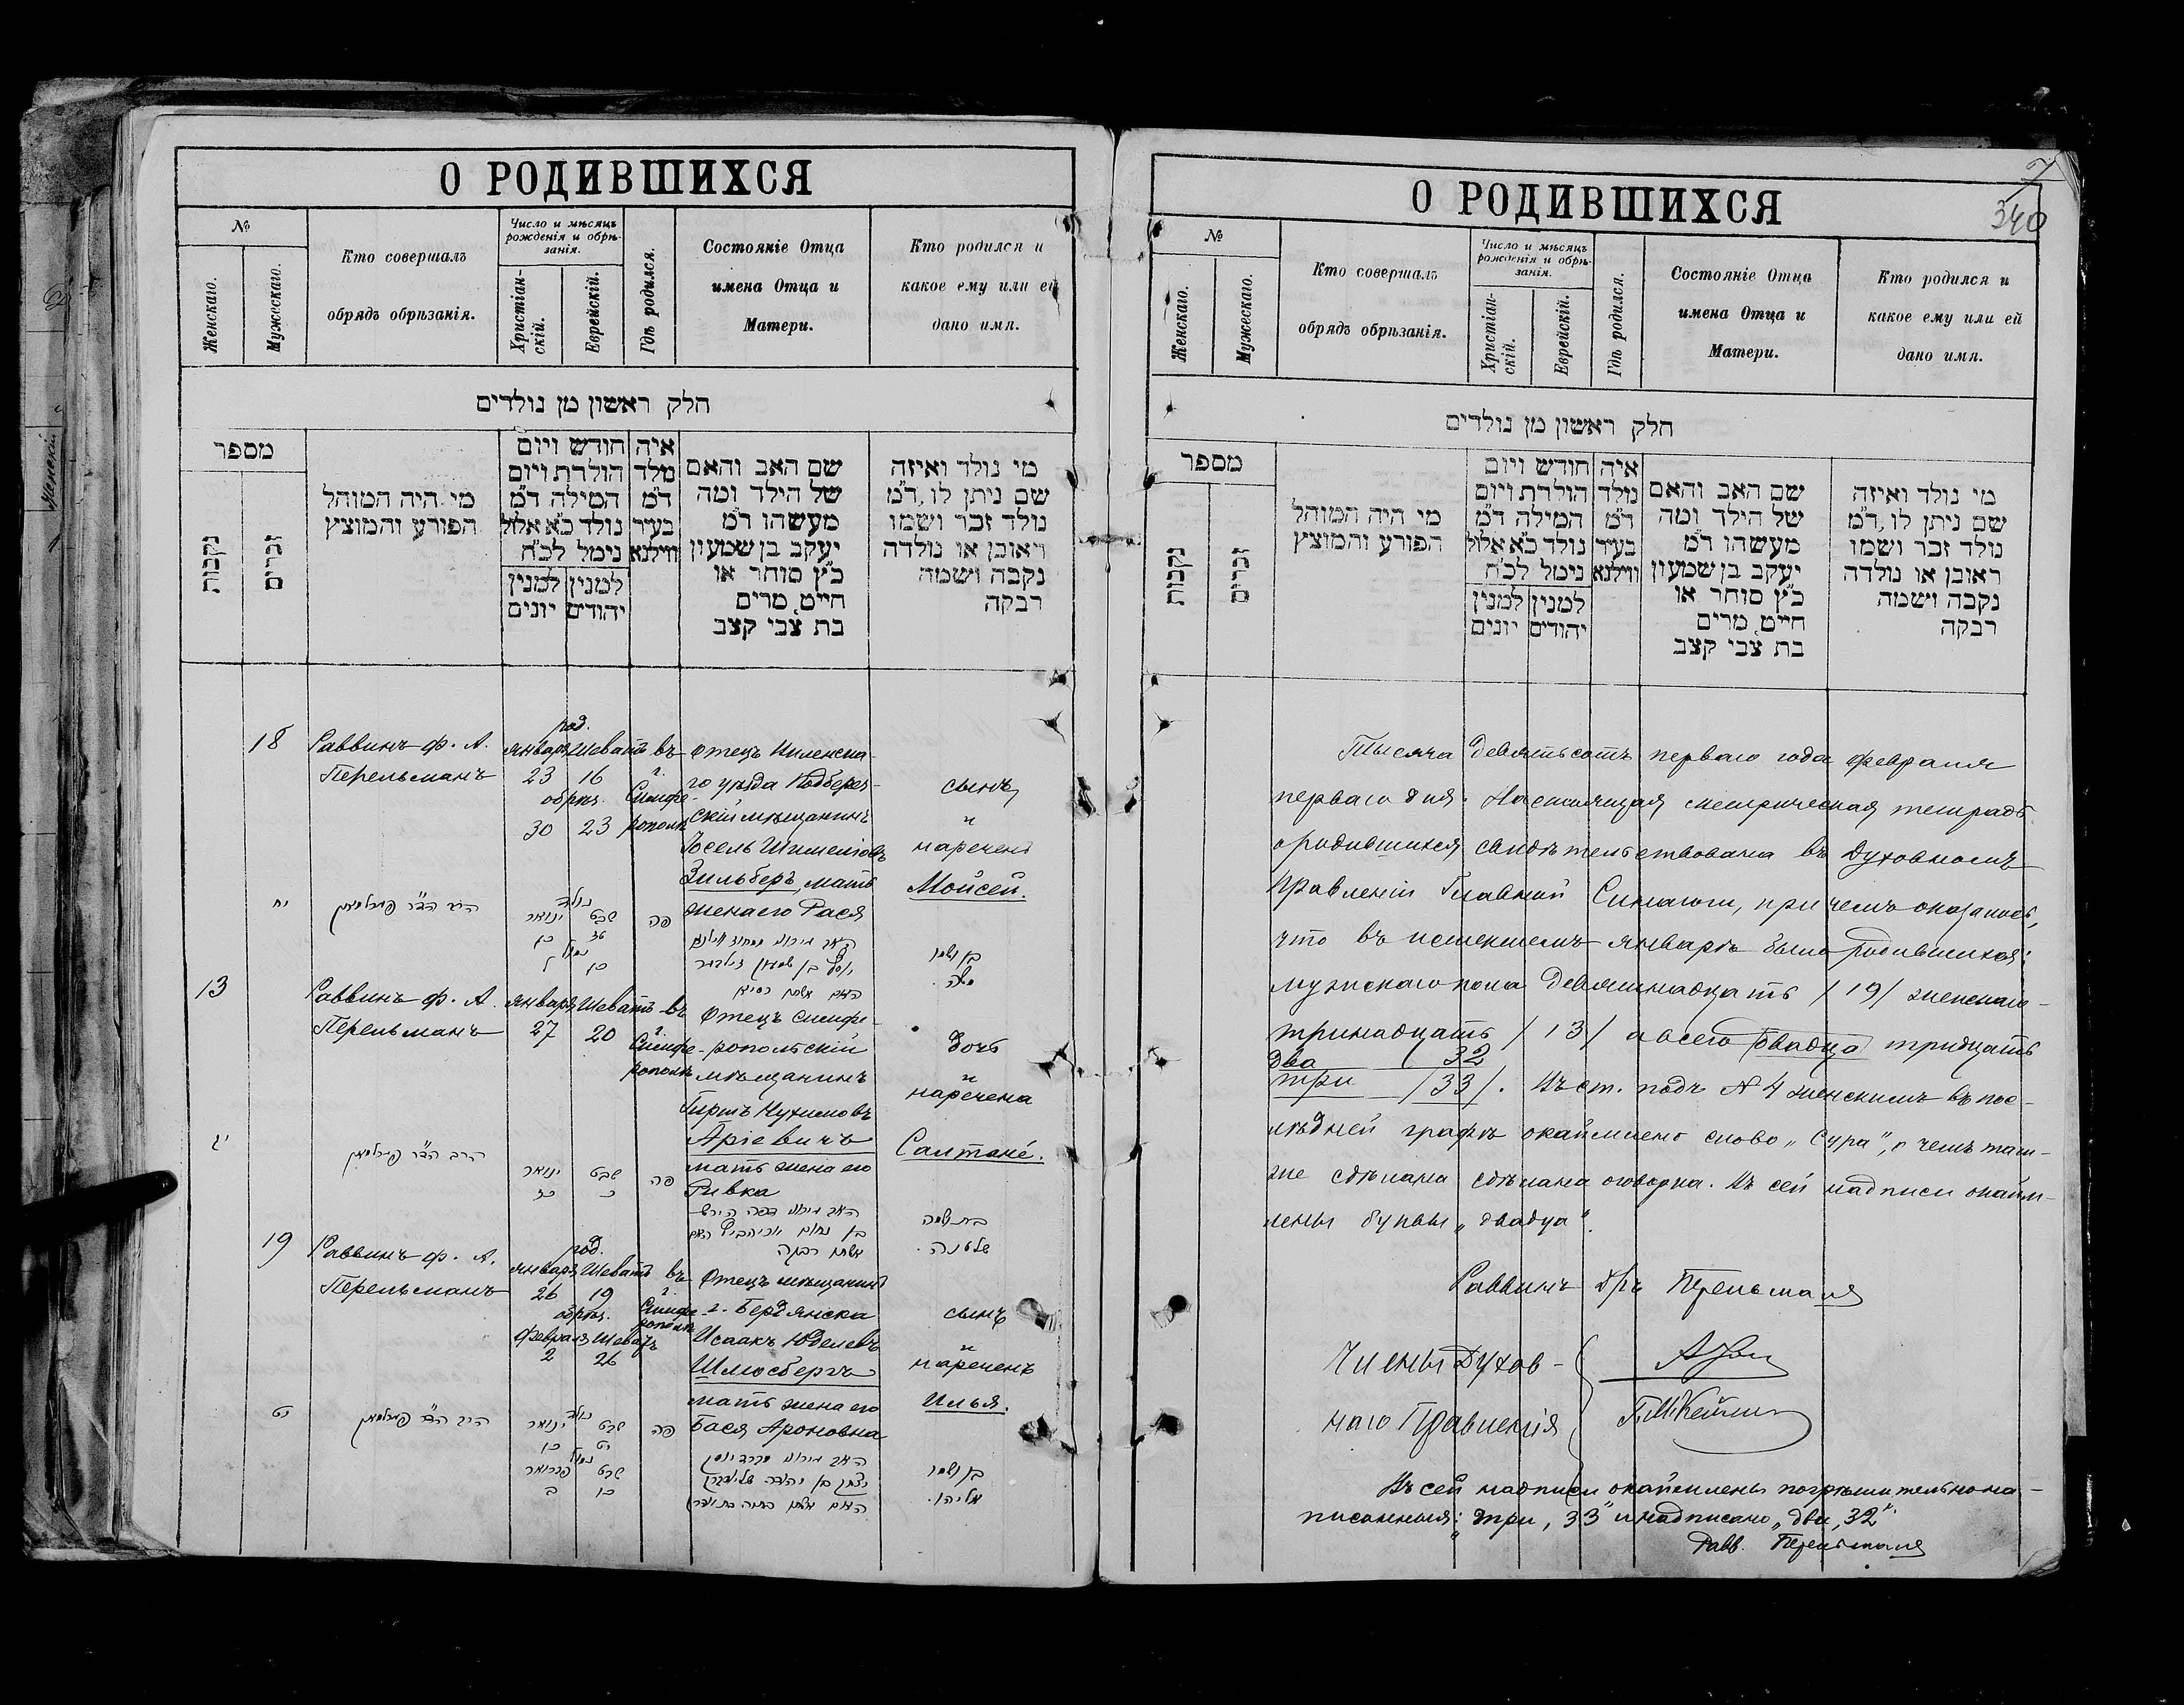 О РОДИВШИХСЯ
№
Женскаго.
Мужескаго.
Кто совершалъ
обрядъ обрѣзанія.
Число и мѣсяцъ
рожденія и обрѣ-
занія.
Христіан-
скій.
Еврейскій.
Гдѣ родился.
Состояніе Отца
имена Отца и
Матери.
Кто родился и
какое ему или ей
дано имя.
חלק ראשון מן נולדים
מספר
נקבות
זכרים
מי היה המוהל
הפורע והמוצץ
חודש ויום
הולדת ויום
המילה ד"מ
נולד כ"א אלול
נימל לכ"ח
למנין יהודים
למנין יונים
איה
נולד
ד"מ
בעיר
ווילנא
שם האב והאם
של הילד ומה
מעשהו ד"מ
יעקב בן שמעון
כ"ץ סוחר או
חייט מרים
בת צבי קצב
מי נולד ואיזה
שם ניתן לו ד"מ
נולד זכר ושמו
ראובן או נולדה
נקבה ושמה
רבקה
18
Раввинъ Ф. А.
Перельманъ
род.
Январь Шеватъ
23 16
обрѣз.
30 23
въ
г.
Симфе-
рополѣ
Отецъ Виленска-
го уѣзда Подберез-
скій мѣщанинъ
Іосель Шимелiовъ
Зильберъ, мать
жена его Рася
сынъ
и
нареченъ
Мойсей.
יח
הרב הד"ר פערלמאן
נולד
שבט ינואר
פה
בן ושמו
משה.
13
Раввинъ Ф. А.
Перельманъ
Январь Шеватъ
27 20
въ
г.
Симфе-
рополѣ
Отецъ Симфе-
ропольскій
мѣщанинъ
Гиршъ Нухимовъ
Аріевичъ
мать жена его
Ривка
дочь
и
наречена
Салтане.
יג
הרב הד"ר פערלמאן
שבט ינואר
פה
בת ושמה
19
Раввинъ Ф. А.
Перельманъ
род.
Январь Шеватъ
26 19
обрѣз.
Февраль Шеватъ
2 26
въ
г.
Симфе-
рополѣ
Отецъ мѣщанинъ
г. Бердянска
Исаакъ Юделевъ
Шмосбергъ
мать жена его
Бася Ароновна
сынъ
и
нареченъ
Илья.
יט
הרב הד"ר פערלמאן
נולד
שבט ינואר
שבט פברואר
פה
בן ושמו
אליהו.
7
340
О РОДИВШИХСЯ
№
Женскаго.
Мужескаго.
Кто совершалъ
обрядъ обрѣзанія.
Число и мѣсяцъ
рожденія и обрѣ-
занія.
Христіан-
скій.
Еврейскій.
Гдѣ родился.
Состояніе Отца
имена Отца и
Матери.
Кто родился и
какое ему или ей
дано имя.
חלק ראשון מן נולדים
מספר
נקבות
זכרים
מי היה המוהל
הפורע והמוצץ
חודש ויום
הולדת ויום
המילה ד"מ
נולד כ"א אלול
נימל לכ"ח
למנין יהודים
למנין יונים
איה
נולד
ד"מ
בעיר
ווילנא
שם האב והאם
של הילד ומה
מעשהו ד"מ
יעקב בן שמעון
כ"ץ סוחר או
חייט מרים
בת צבי קצב
מי נולד ואיזה
שם ניתן לו ד"מ
נולד זכר ושמו
ראובן או נולדה
נקבה ושמה
רבקה
Тысяча девятьсотъ перваго года февраля
перваго дня. Настоящая метрическая тетрадь
о родившихся свидѣтельствована въ Духовномъ
Правленіи Главной Синагоги, при чемъ оказалось,
что въ истекшемъ январѣ было родившихся:
мужскаго пола девятнадцать /19/ женскаго-
тринадцать /13/ а всего двадца тридцать
два 32
три /33/. Въ ст. подъ № 4 женскимъ въ пос-
лѣдней графѣ окаймлено слово „Сура", о чемъ там-
же сдѣлана сдѣлана оговорка. Въ сей надписи окайм-
лены буквы „двадца".
Раввинъ Д/ръ Перельманъ
Члены Духов-
наго Правленія
Въ сей надписи окаймлены погрѣшительно на-
писанныя: „три, 33" и надписано „два, 32".
Равв. Перельманъ